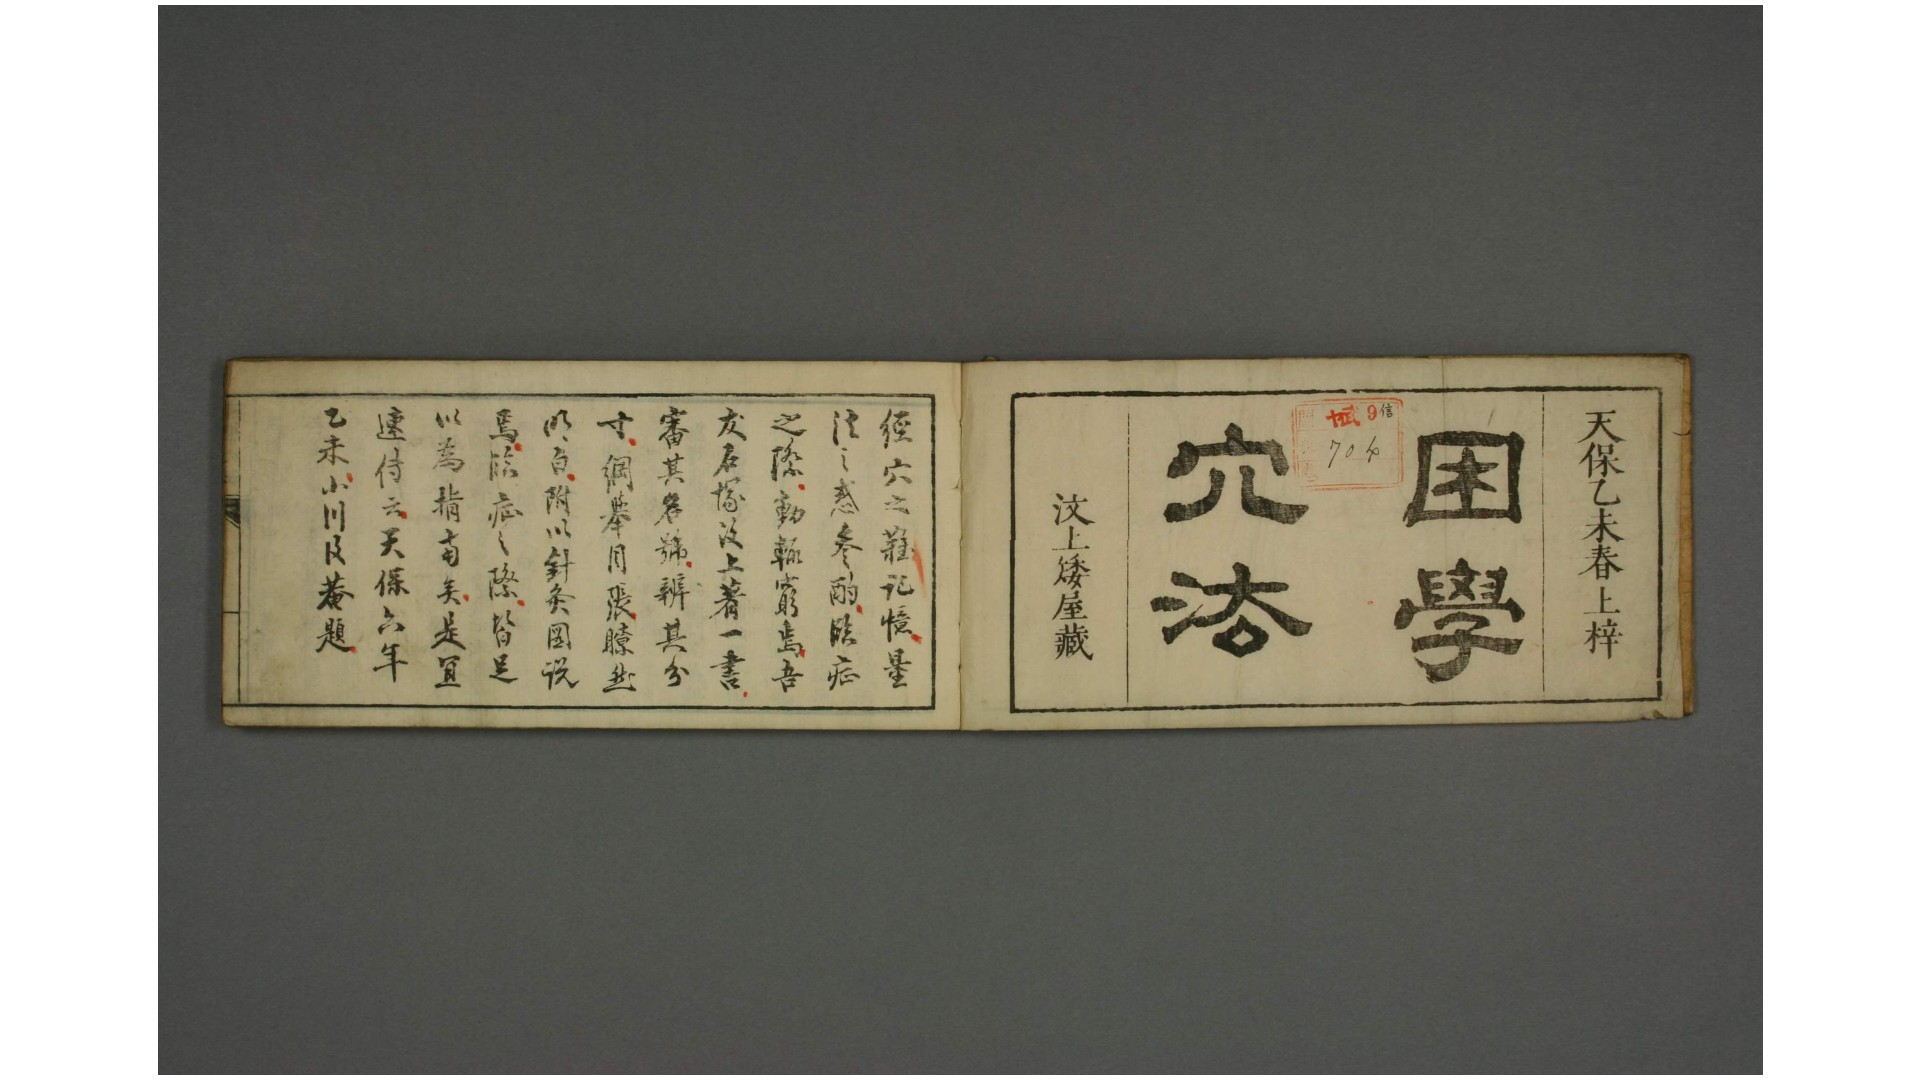 天保乙未春上梓
困學
穴法
汶上矮屋藏
信
9
704
經穴之難記憶量
注之惑參酌臨症
之際動輒窮焉吾
友石塚汶上著一書
審其名號辨其分
寸綱舉目張瞭然
明白附以針灸圖説
焉臨症之際皆足
以為指南矣是宜
速侍云天保六年
乙未小川汶菴題